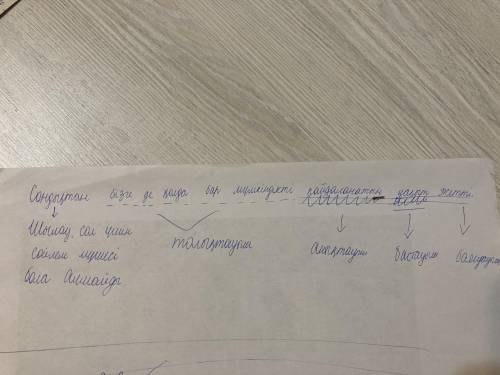 Сондықтан бізге де қолда бар мүмкіндікті пайдаланатын уақыт жетті.
Шылау, сол үшін толықтауыш анықтауыш бастауыш баяндауыш
сөйлем мүшесі
бола алмайды